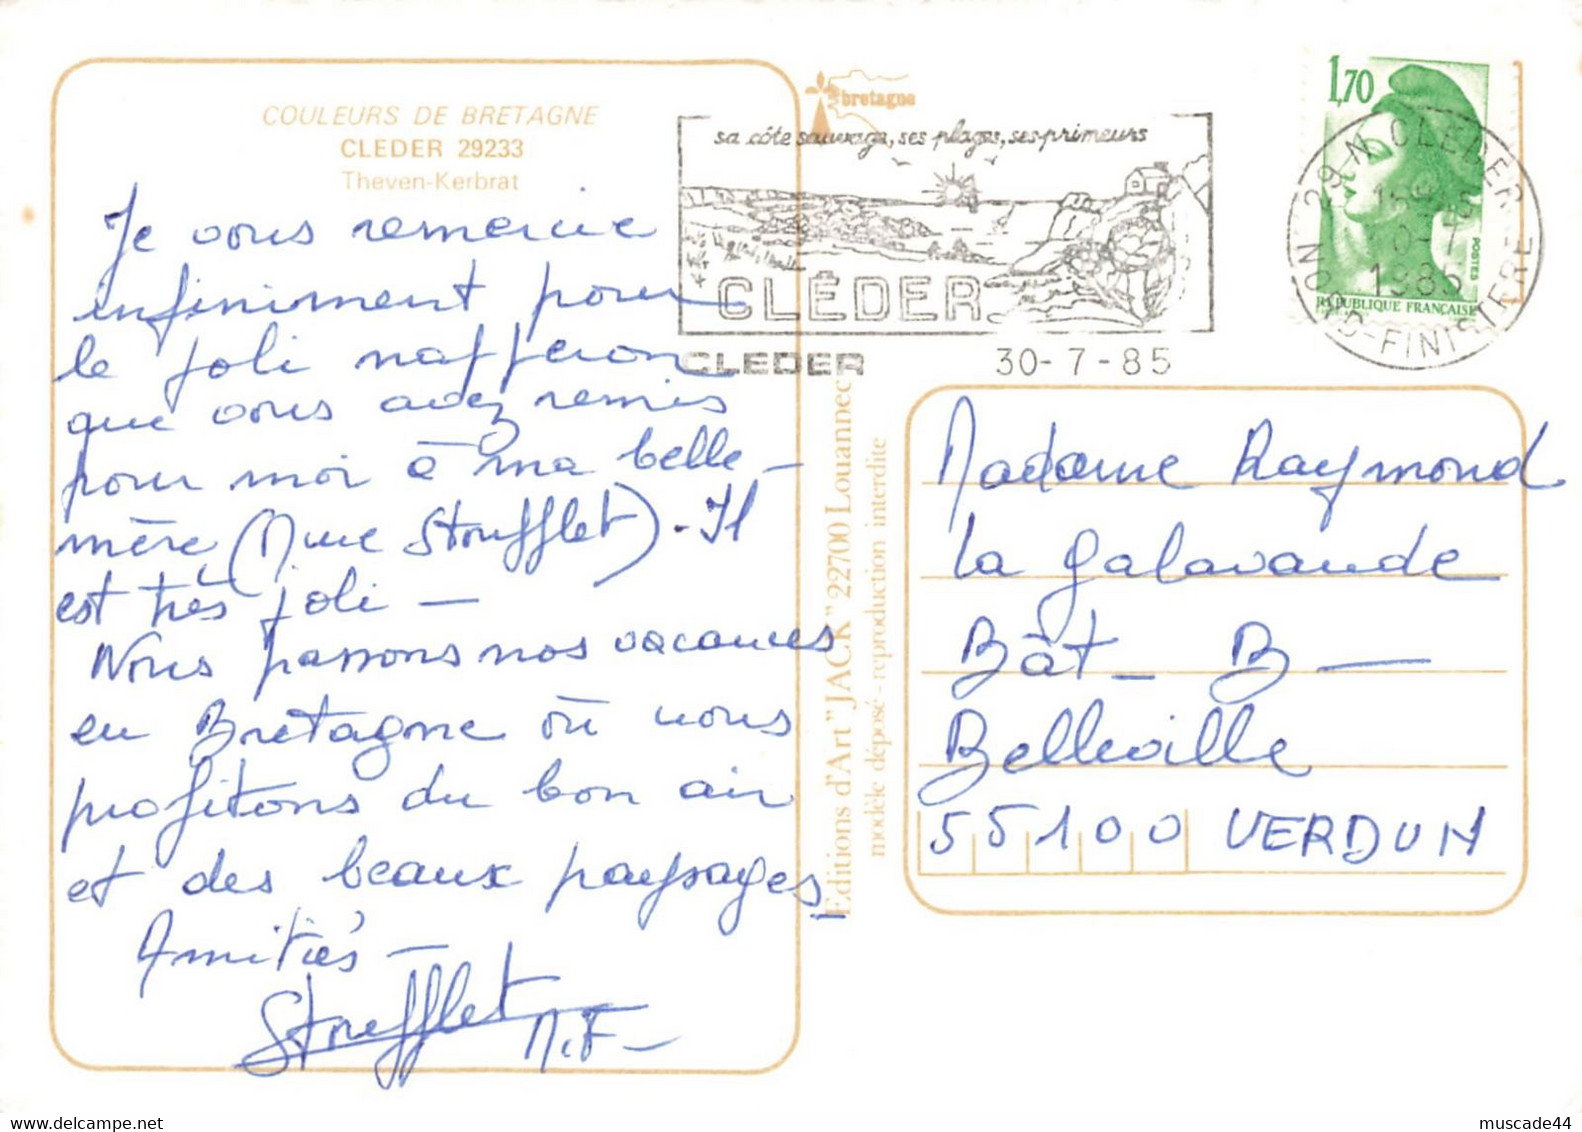 COULEURS DE BRETAGNE
CLEDER 29233
Theven-Kerbrat
Je vous remercie
infiniment pour
le joli napperon
que vous avez remis
pour moi à ma belle-
mère (Mme Stoufflet). Il
est très joli —
Nous passons nos vacances
en Bretagne où nous
profitons du bon air
et des beaux paysages,
Amitiés —
Stoufflet M.F —
bretagne
sa côte sauvage, ses plages, ses primeurs
CLÉDER
CLEDER 30-7-85
1,70
POSTES
RÉPUBLIQUE FRANÇAISE
29-N CLEDER
1985
NORD-FINISTERE
Editions d'Art "JACK" 22700 Louannec
modèle déposé - reproduction interdite
Madame Raymond
La Galavaude
Bât - B —
Belleville
55100 VERDUN
muscade44